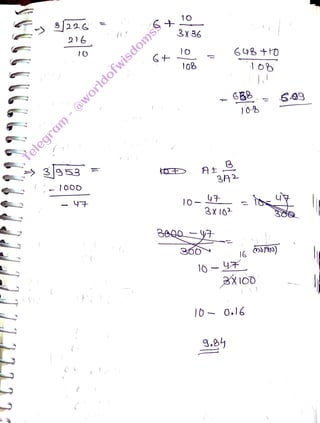 → ∛226 = 6 + 10/(3×36)
216
10
6 + 10/108 = (648 + 10)/108
= 658/108 = 6.09
Telegram - @worldofwisdomss
→ ∛953 =
- 1000
- 47
A ± B/3A²
10 - 47/(3×10²) = 10 - 47/300
(3000 - 47)/300 =
10 - 47/(3×100) 16
10 - 0.16
9.84